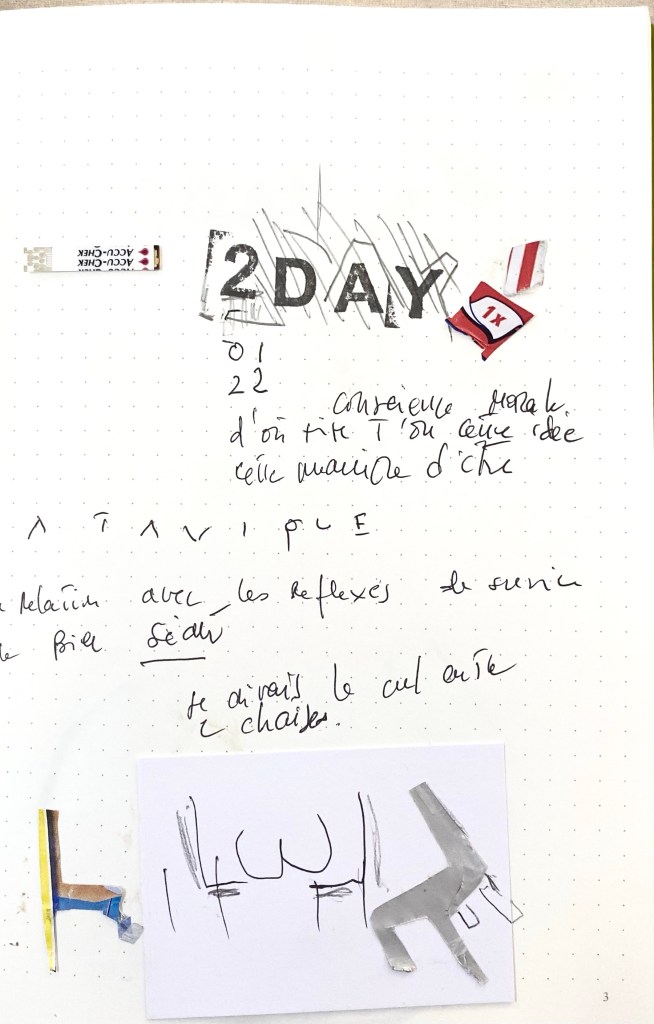 ACCU-CHEK
ACCU-CHEK
ACCU-CHEK
2DAY
1x
01
22
conscience morale.
d'où tire t'on cette idée
cette manière d'être
ATAVIQUE
relation avec les reflexes de survie
Bien
je dirais le cul entre
2 chaises.
3